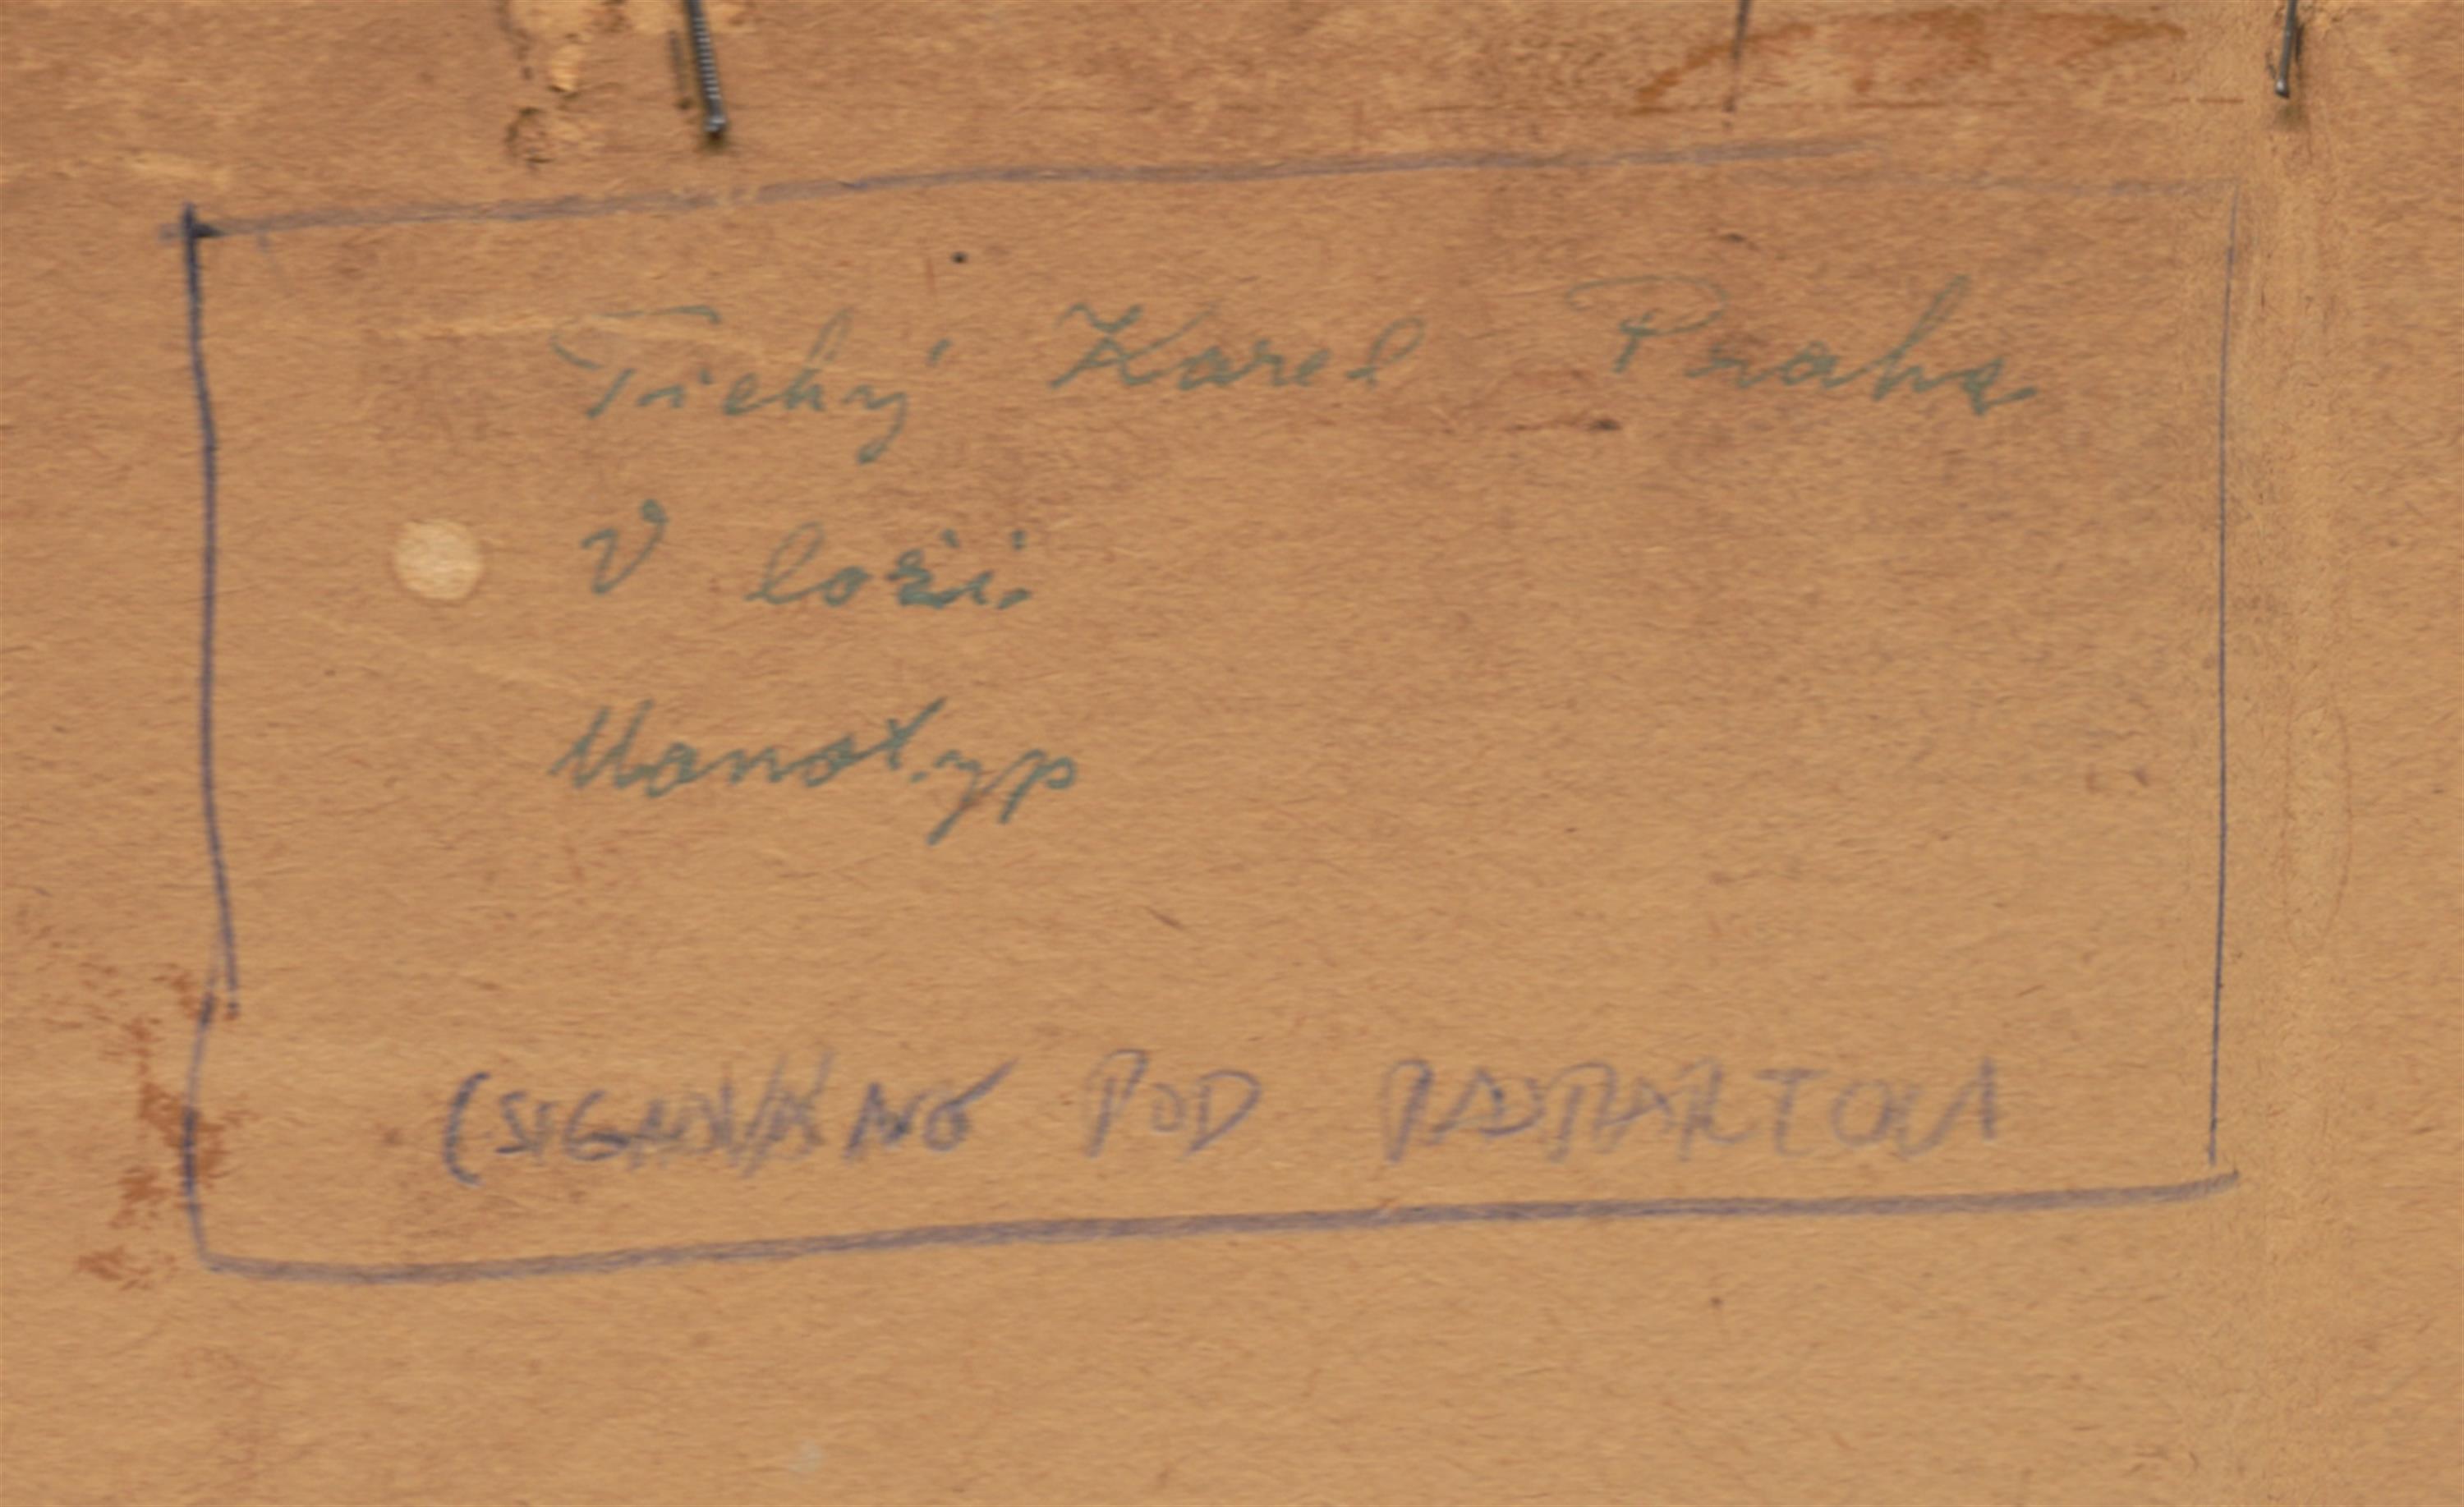 Tichý Karel Praha
V loži.
Monotyp
(SIGNOVÁNO POD PASPARTOU)